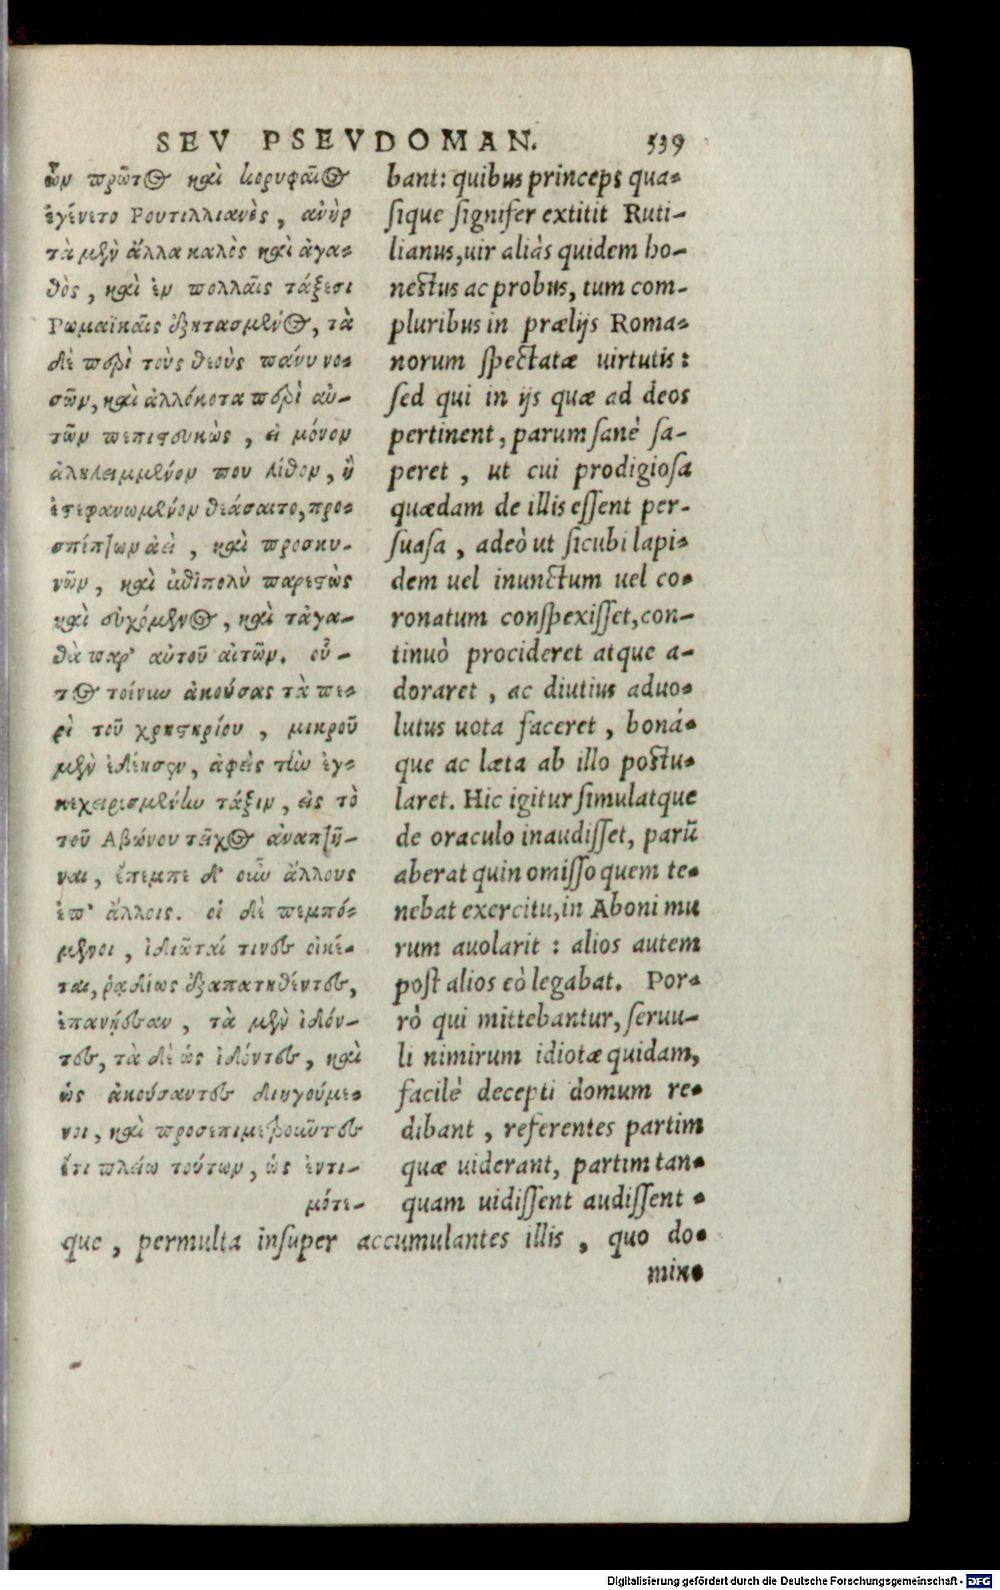 SEV PSEVDOMAN. 539
ὧν πρῶτος καὶ κορυφαῖος
ἐγένετο Ρουτιλλιανὸς, ἀνὴρ
τὰ μὲν ἄλλα καλὸς καὶ ἀγα-
θὸς, καὶ ἐν πολλαῖς τάξεσι
Ρωμαϊκαῖς ἐξητασμένος, τὰ
δὲ περὶ τοὺς θεοὺς πάνυ νο-
σῶν, καὶ ἀλλόκοτα περὶ αὐ-
τῶν πεπιστευκὼς, εἰ μόνον
ἀληλειμμένον που λίθον, ἢ
ἐστεφανωμένον θεάσαιτο, προσ-
πίπτων ἀεὶ, καὶ προσκυ-
νῶν, καὶ ἐπιπολὺ παρεστὼς
καὶ εὐχόμενος, καὶ τἀγα-
θὰ παρ' αὐτοῦ αἰτῶν. οὗ-
τος τοίνυν ἀκούσας τὰ πε-
ρὶ τοῦ χρηστηρίου, μικροῦ
μὲν ἐδέησεν, ἀφεὶς τὴν ἐγ-
κεχειρισμένην τάξιν, εἰς τὸ
τοῦ Αβώνου τεῖχος ἀναπτῆ-
ναι, ἔπεμπε δ' οὖν ἄλλους
ἐπ' ἄλλοις. οἱ δὲ πεμπό-
μενοι, ἰδιῶταί τινες οἰκέ-
ται, ῥᾳδίως ἐξαπατηθέντες,
ἐπανῄεσαν, τὰ μὲν ἰδόν-
τες, τὰ δὲ ὡς ἰδόντες, καὶ
ὡς ἀκούσαντες διηγούμε-
νοι, καὶ προσεπιμετροῦντες
ἔτι πλείω τούτων, ὡς ἐντι-
μότε-
bant: quibus princeps qua-
sique signifer extitit Ruti-
lianus, uir aliàs quidem ho-
nestus ac probus, tum com-
pluribus in prælijs Roma-
norum spectatæ uirtutis:
sed qui in ijs quæ ad deos
pertinent, parum sanè sa-
peret, ut cui prodigiosa
quædam de illis essent per-
suasa, adeò ut sicubi lapi-
dem uel inunctum uel co-
ronatum conspexisset, con-
tinuò procideret atque a-
doraret, ac diutius aduo-
lutus uota faceret, boná-
que ac læta ab illo postu-
laret. Hic igitur simulatque
de oraculo inaudisset, parū
aberat quin omisso quem te-
nebat exercitu, in Aboni mu
rum auolarit: alios autem
post alios eò legabat. Por-
rò qui mittebantur, seruu-
li nimirum idiotæ quidam,
facilè decepti domum re-
dibant, referentes partim
quæ uiderant, partim tan-
quam uidissent audissent-
que, permulta insuper accumulantes illis, quo do-
min-
Digitalisierung gefördert durch die Deutsche Forschungsgemeinschaft - DFG